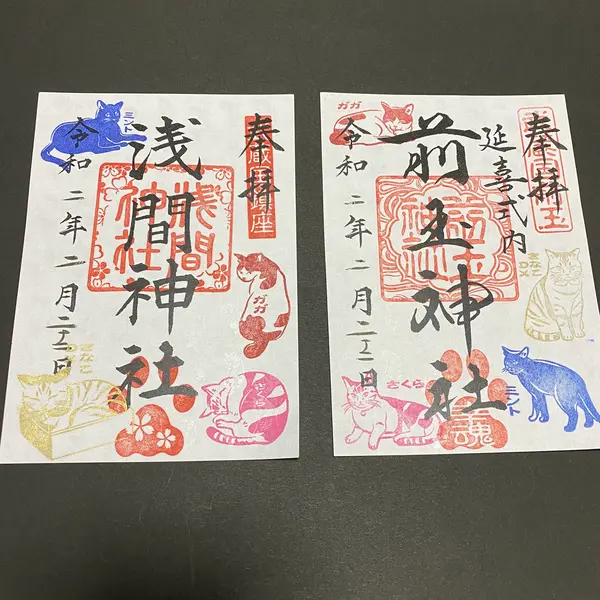 奉拝
浅間神社
浅間神社
令和二年二月二十二日
ミント
ガガ
さくら
きなこ
奉拝
延喜式内
前玉神社
令和二年二月二十二日
ガガ
きなこ
ミント
さくら